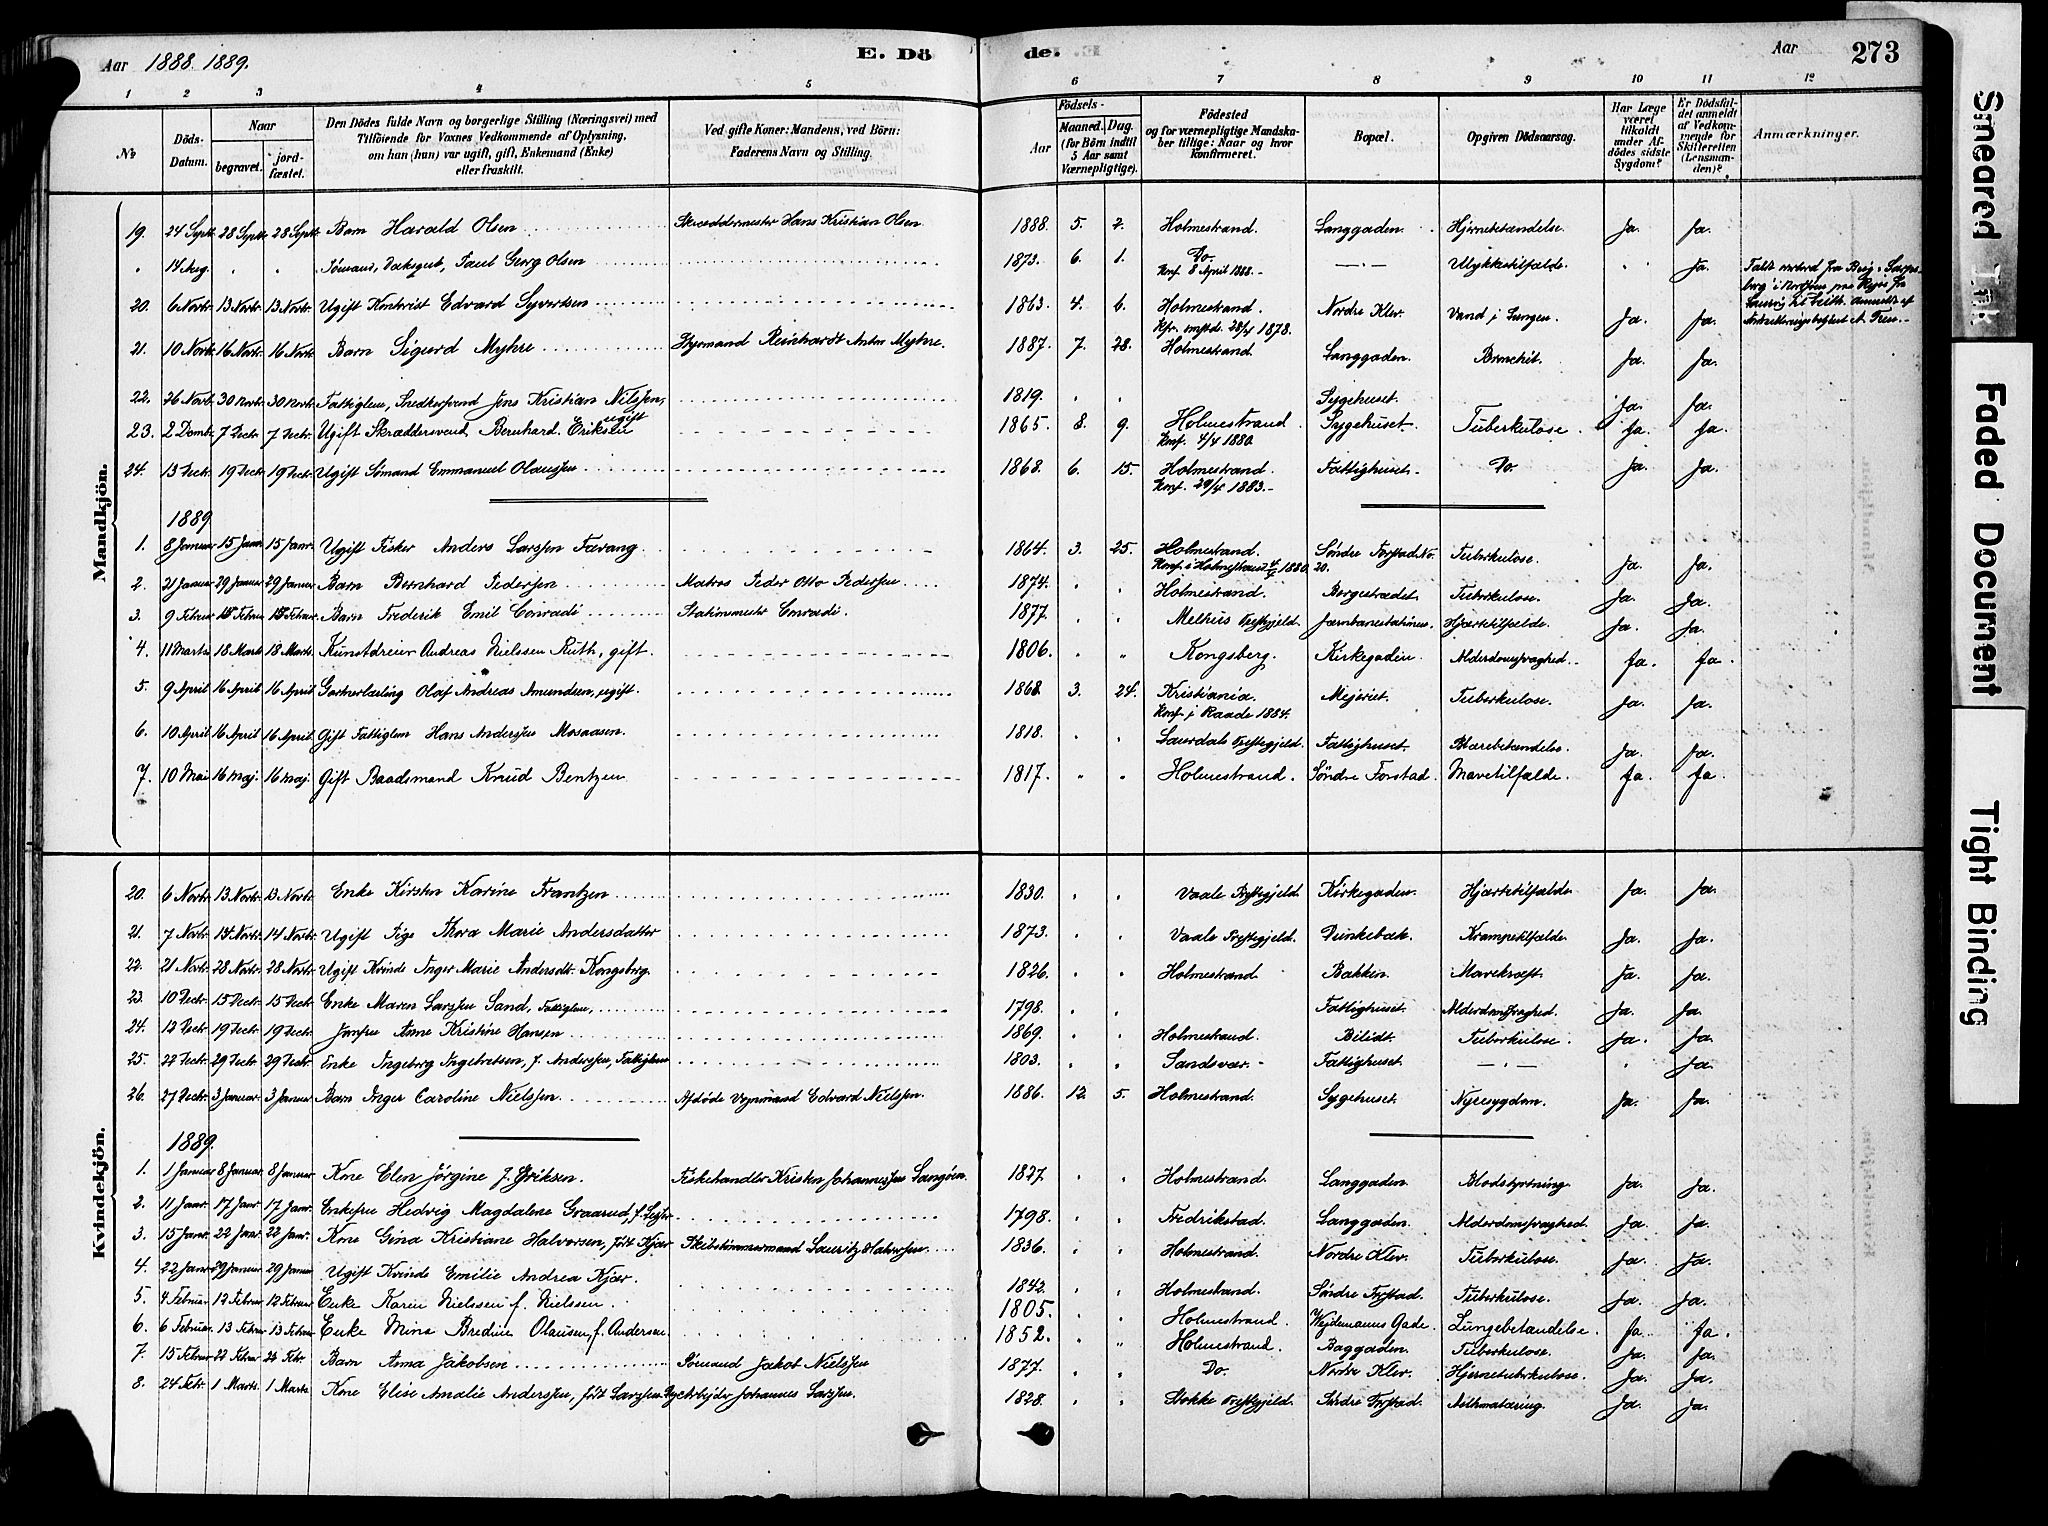 Aar 1888. 1889.
E. Dö
de.
Aar
273
1 2 3 4 5 6 7 8 9 10 11 12
No
Döds-Datum.
Naar
begravet.
jord-fæstet.
Den Dödes fulde Navn og borgerlige Stilling (Næringsvei) med
Tilföiende for Voxnes Vedkommende af Oplysning,
om han (hun) var ugift, gift, Enkemand (Enke)
eller fraskilt.
Ved gifte Koner: Mandens, ved Börn:
Faderens Navn og Stilling.
Födsels-
Aar
Maaned. Dag.
(for Börn indtil
5 Aar samt
Værnepligtige).
Födested
og for værnepligtige Mandska-
ber tillige: Naar og hvor
konfirmeret.
Bopæl.
Opgiven Dödsaarsag.
Har Læge
været
tilkaldt
under Af-
dödes sidste
Sygdom?
Er Dödsfal-
det anmeldt
af Vedkom-
mende for
Skifteretten
(Lensman-
den)?
Anmærkninger.
Mandkjön.
19. 24 Septr. 28 Septr. 28 Septr. Barn Harald Olsen Skræddermester Hans Kristian Olsen 1888. 5. 2. Holmestrand. Langgaden. Hjernebetændelse. Ja. Ja.
" 14 Aug. " " Sømand, Dæksgut, Paul Georg Olsen 1873. 6. 1. Do. Konf. 8 April 1888. — " — Ulykkestilfælde. " Ja.
20. 6 Novbr. 13 Novbr. 13 Novbr. Ugift Kontorist Edvard Syvertsen 1863. 4. 6. Holmestrand. Nordre Klev. Vand i Lungen. Ja. Ja.
28/4 1878.
21. 10 Novbr. 16 Novbr. 16 Novbr. Barn Sigurd Myhre Styrmand Reinhardt Anton Myhre. 1887. 7. 28. Holmestrand. Langgaden. Bronchit. Ja. Ja.
22. 26 Novbr. 30 Novbr. 30 Novbr. Fattiglem, Snedkersvend Jens Kristian Nilssen, ugift 1819. " " Sygehuset. Ja. Ja.
23. 2 Decbr. 7 Decbr. 7 Decbr. Ugift Skræddersvend Bernhard Eriksen 1865. 8. 9. Holmestrand Sygehuset. Tuberkulose. Ja. Ja.
Konf. 4/4 1880.
24. 13 Decbr. 19 Decbr. 19 Decbr. Ugift Sømand Emmanuel Olaussen 1868. 6. 15. Holmestrand. Fattighuset. Do Ja. Ja.
Konf. 29/4 1883.
1889
1. 8 Januar 15 Janr. 15 Janr. Ugift Fisker Anders Larssen Favang 1864. 3. 25. Holmestrand. Søndre Forstad No. 20. Tuberkulose. Ja. Ja.
Konf. i Holmestrand 1880.
2. 21 Januar 29 Januar 29 Januar Barn Bernhard Pedersen Matros Peder Otto Pedersen 1874. " " Holmestrand. Borgestrædet. Tuberkulose. Ja. Ja.
3. 9 Februar 15 Februar 15 Februar Barn Frederik Emil Conradi Stationsmester Conradi. 1877. " " Melhus Prestegjeld. Jernbanestationen. Hjertetilfælde. Ja. Ja.
4. 11 Marts 18 Marts 18 Marts. Kunstdreier Andreas Nielssen Ruth, gift. 1806. " " Kongsberg. Kirkegaden. Alderdomssvaghed. Ja. Ja.
5. 9 April 16 April 16 April Gartnerlærling Olaf Andreas Amundsen, ugift. 1868. 3. 24. Kristiania. Mejeriet. Tuberkulose. Ja. Ja.
Konf. i Raade 1884.
6. 10 April 16 April 16 April Gift Fattiglem Hans Anderssen Mosaasen. 1818. " " Laurdals Prestegjeld. Fattighuset. Blærebetændelse. Ja. Ja.
7. 10 Mai 16 Maj. 16 Maj. Gift Baadsmand Knud Bentzen 1817. " " Holmestrand. Søndre Forstad. Mavetilfælde. Ja. Ja.
Kvindekjön.
20. 6 Novbr. 13 Novbr. 13 Novbr. Enke Kirsten Karine Frantzen 1830. " " Vaale Prestegjeld. Kirkegaden. Hjærtetilfælde. Ja. Ja.
21. 7 Novbr. 14 Novbr. 14 Novbr. Ugift Pige Thora Marie Andersdatter 1873. " " Vaale Prestegjeld. Dunkebæk. Krampetilfælde. Ja. Ja.
22. 21 Novbr. 28 Novbr. 28 Novbr. Ugift Kvinde Inger Marie Andersdt. Kongsberg. 1826. " " Holmestrand Bakken. Mavekræft. Ja. Ja.
23. 10 Decbr. 15 Decbr. 15 Decbr. Enke Maren Larssen Sand, Fattiglem, 1798. " " Fattighuset. Alderdomssvaghed. Ja. Ja.
24. 12 Decbr. 19 Decbr. 19 Decbr. Jomfru Anne Kristine Hansen 1869. " " Holmestrand. Bilidt. Tuberkulose. Ja. Ja.
25. 22 Decbr. 29 Decbr. 29 Decbr. Enke Ingeborg Ingebretsen, f. Anderssen, Fattiglem 1803. " " Sandsvær. Fattighuset. — " — " Ja.
26. 27 Decbr. 3 Januar. 3 Januar. Barn Inger Caroline Nielssen Afdøde Vognmand Edvard Nielssen. 1886. 12. 5. Holmestrand. Sygehuset. Nyresygdom. Ja. Ja.
1889.
1. 1 Januar 8 Januar. 8 Januar. Kone Elen Jørgine f. Eriksen. Fiskehandler Kristen Johannessen Langøen. 1827. " " Holmestrand. Langgaden. Blodstyrtning. Ja. Ja.
2. 11 Janr. 17 Janr. 17 Janr. Enkefru Hedvig Magdalene Graarud, f. 1798. " " Fredrikstad. Langgaden. Alderdomssvaghed. Ja. Ja.
3. 15 Janr. 22 Janr. 22 Janr. Kone Gina Kristiane Halvorsen, født Kjær Skibstømmermand Lauritz Halvorsen 1836. " " Holmestrand. Nordre Klev. Tuberkulose. Ja. Ja.
4. 22 Janr. 29 Januar. 29 Januar Ugift Kvinde Emilie Andrea Kjær. 1842. " " Holmestrand. Søndre Forstad. Tuberkulose. Ja. Ja.
5. 4 Februar. 12 Februar. 12 Februar. Enke Karen Nielssen f. Nielssen 1805. " " Holmestrand. Wejdemanns Gade. Lungebetændelse. Ja. Ja.
6. 6 Februar. 13 Februar. 13 Februar. Enke Mina Bredine Olausen, f. Andersen 1852. " " Holmestrand. Baggaden. Tuberkulose. Ja. Ja.
7. 15 Februar 22 Februar 22 Febr. Barn Anna Jakobsen Sømand Jakob Nielssen 1877. " " Do. Nordre Klev. Hjernetuberkulose. Ja. Ja.
8. 24 Febr. 1 Marts. 1 Marts. Kone Elise Amalie Anderssen, født Larssen Johannes Larssen. 1828. " " Stokke Prestegjeld. Søndre Forstad. Asthmatæring. Ja. Ja.
Smeared Ink
Faded Document
Tight Binding